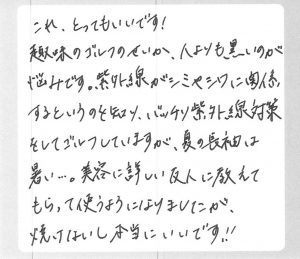 これ、とってもいいです!
趣味のゴルフのせいか、人よりも黒いのが
悩みです。紫外線がシミやシワに関係
するというのを知り、バッチリ紫外線対策
をしてゴルフしていますが、夏の長袖は
暑い…。美容に詳しい友人に教えて
もらって使うようになりましたが、
焼けないし本当にいいです!!